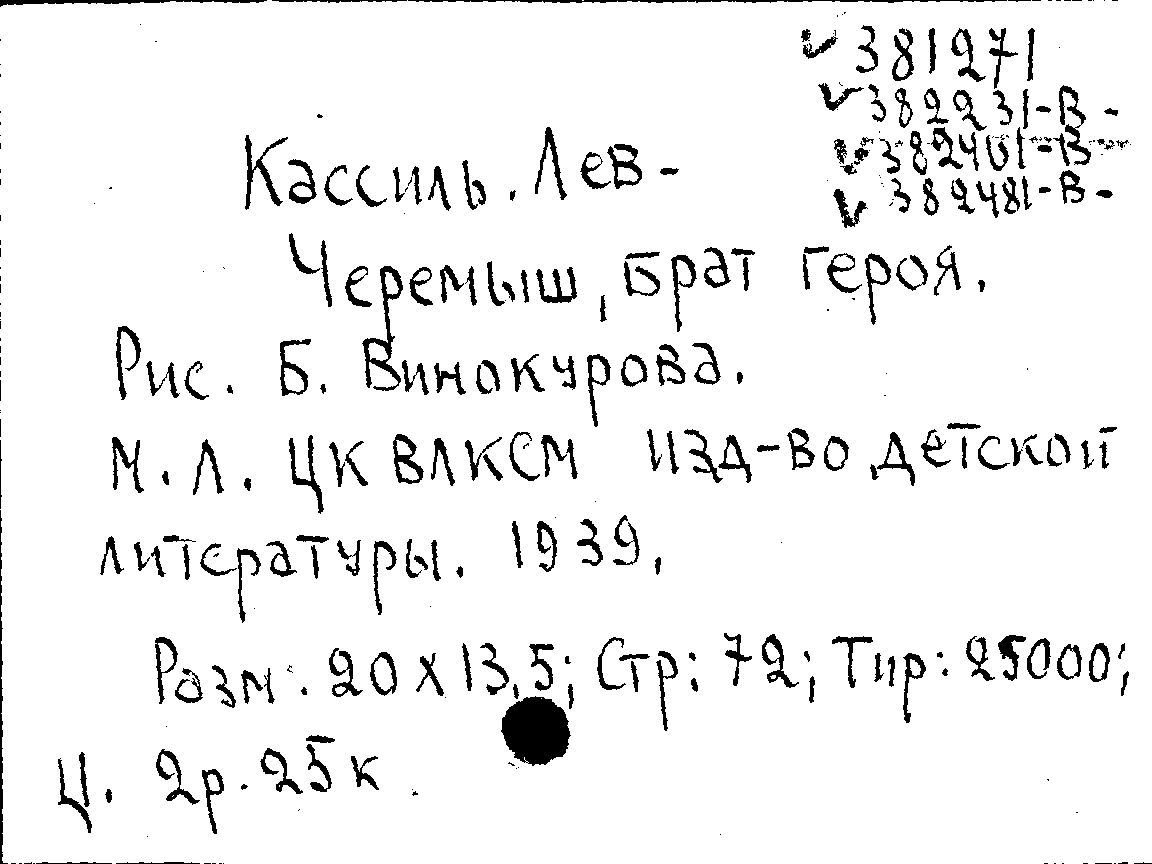 ✓ 381271
✓ 382231-В -
✓ 382401-В -
✓ 382481-В -
Кассиль. Лев -
Черемыш, брат героя.
Рис. Б. Винокурова.
М. Л. ЦК ВЛКСМ изд-во детской
литературы. 1939,
Разм: 20 х 13,5; Стр: 72; Тир: 25000;
Ц. 2р. 25 к.